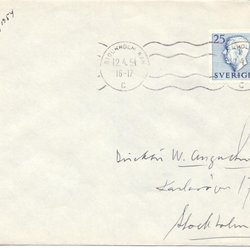 1954
STOCKHOLM BAN
12.4.54
16-17
C
25
SVERIGE
Direktör W.
Karlavägen
Stockholm